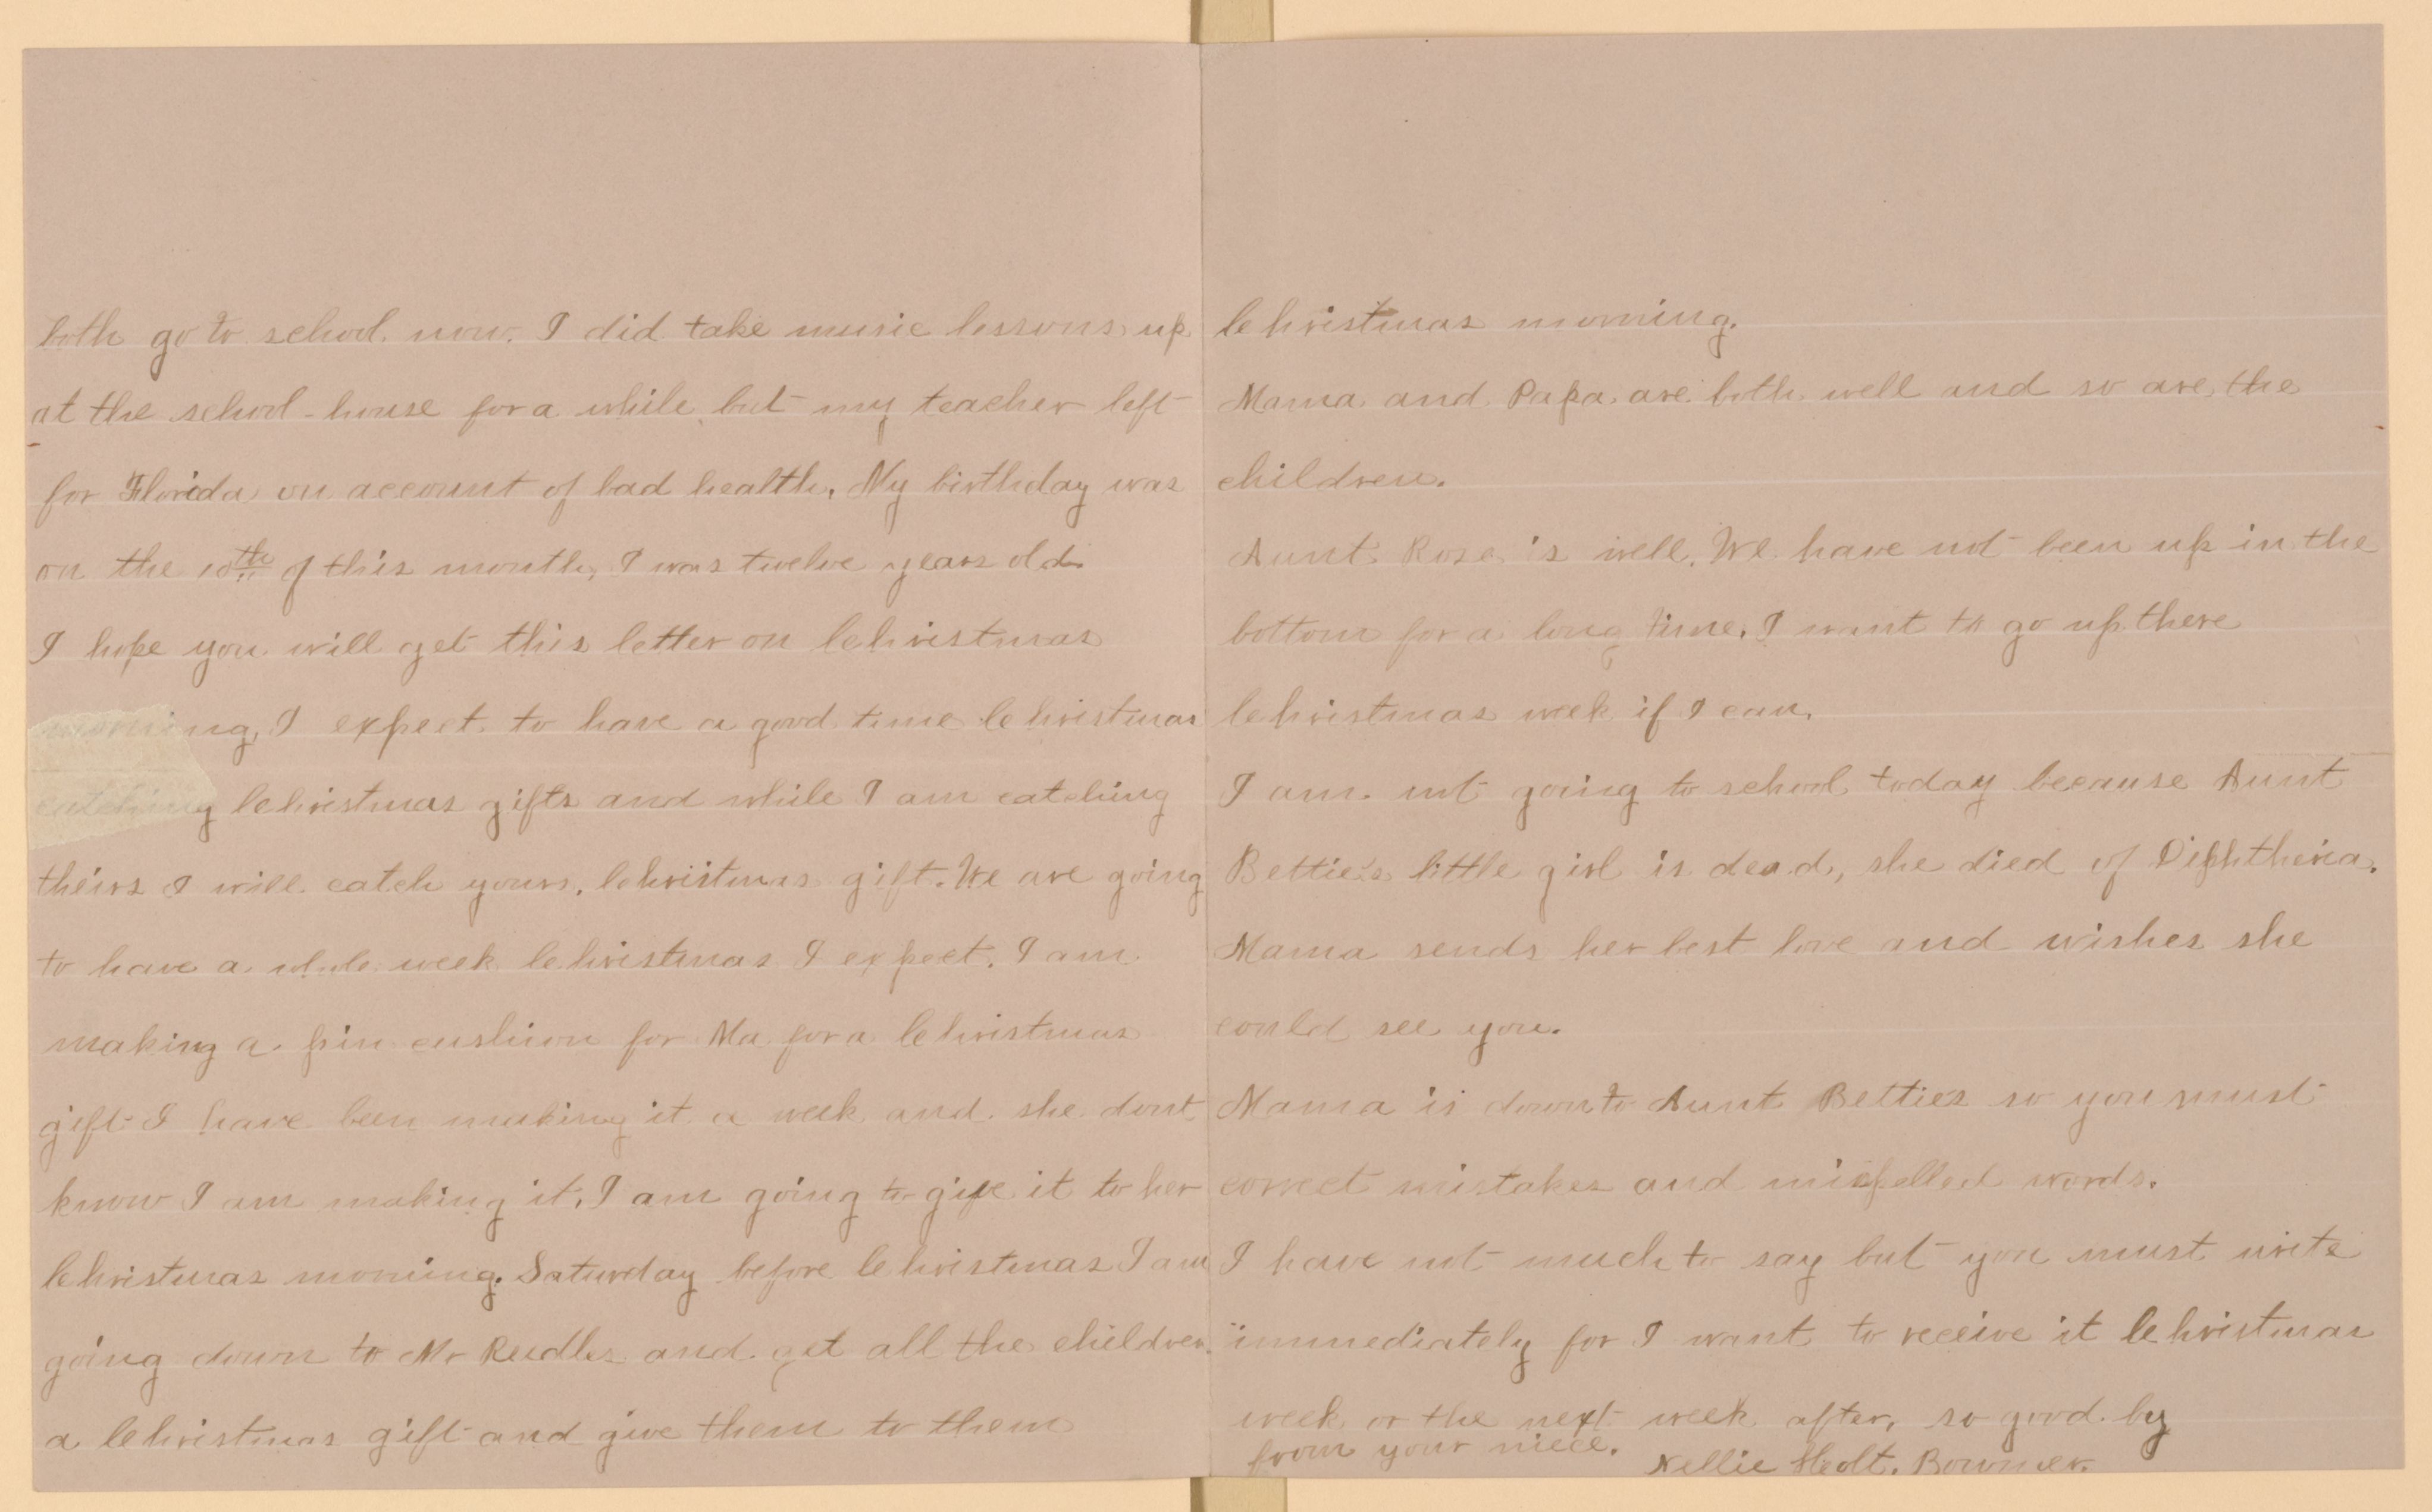 both go to school now. I did take music lessons up
at the school-house for a while but my teacher left
for Florida on account of bad health. My birthday was
on the 10th of this month, I was twelve years old.
I hope you will get this letter on Christmas
morning, I expect to have a good time Christmas
catching Christmas gifts and while I am catching
theirs I will catch yours, Christmas gift. We are going
to have a whole week Christmas I expect. I am
making a pin cushion for Ma for a Christmas
gift I have been making it a week and she dont
know I am making it, I am going to give it to her
Christmas morning. Saturday before Christmas I am
going down to Mr Rudles and get all the children
a Christmas gift and give them to them
Christmas morning.
Mama and Papa are both well and so are the
children.
Aunt Rose is well. We have not been up in the
bottom for a long time. I want to go up there
Christmas week if I can.
I am not going to school today because Aunt
Bettie's little girl is dead, she died of Diphtheria.
Mama sends her best love and wishes she
could see you.
Mama is down to Aunt Betties so you must
correct mistakes and mispelled words.
I have not much to say but you must write
immediately for I want to receive it Christmas
week or the next week after, so good by
from your niece.
Nellie Holt. Bowmer.